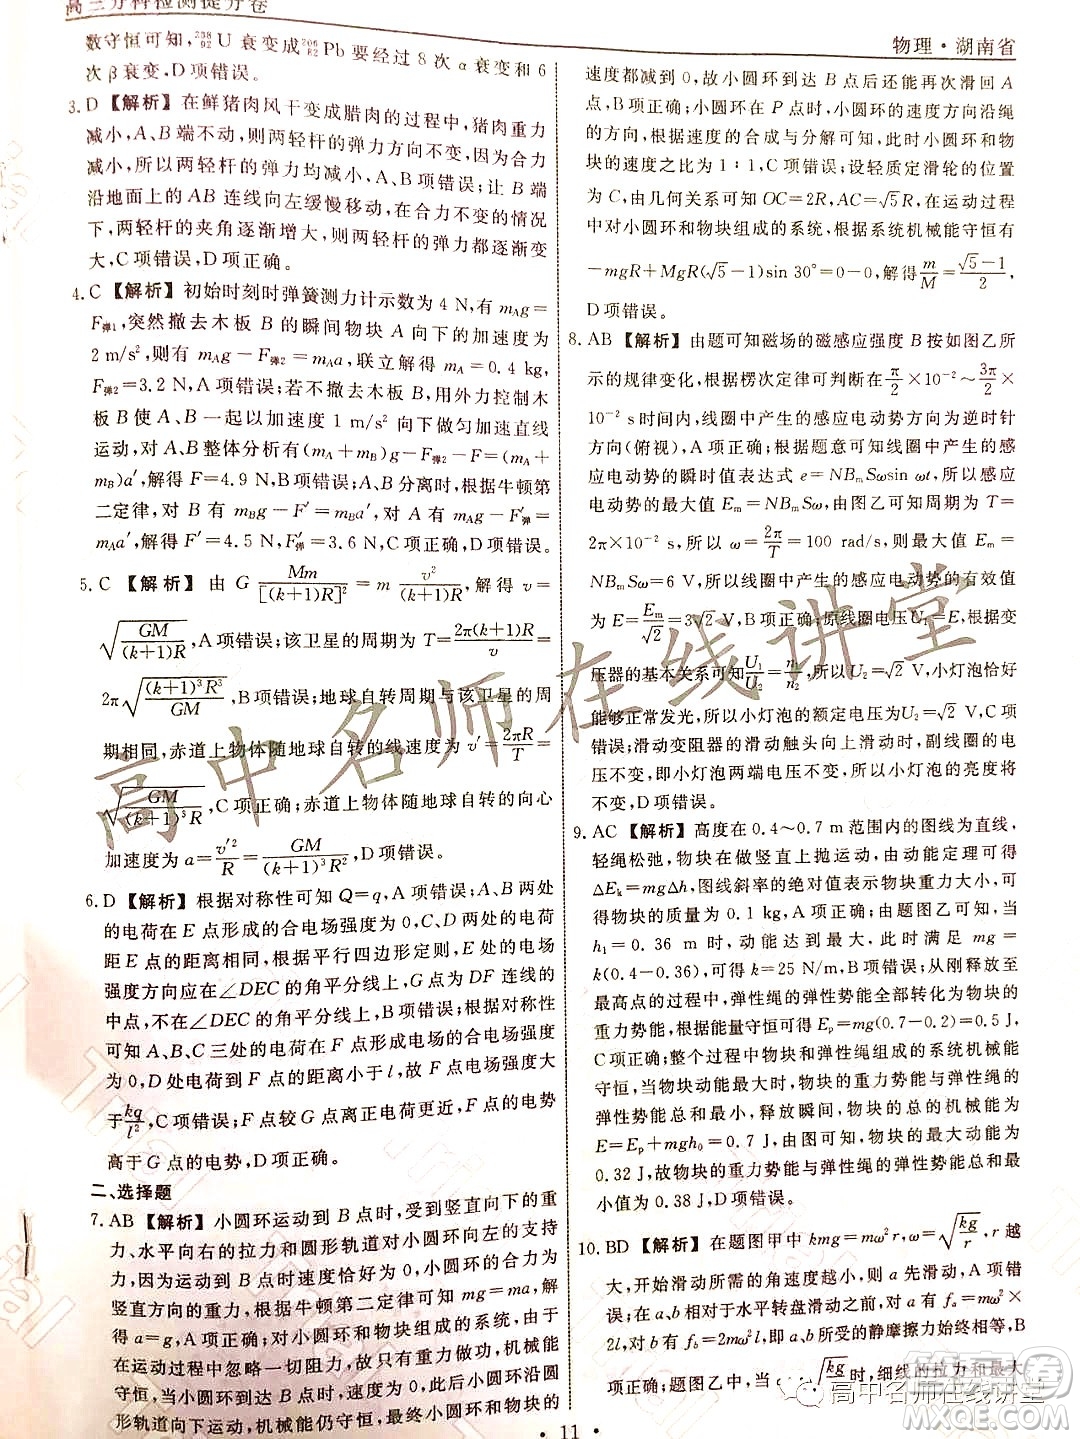 高三分科检测提分卷
物理·湖南省
数守恒可知,²³⁸₉₂U 衰变成²⁰⁶₈₂Pb 要经过 8 次 α 衰变和 6
次 β 衰变,D 项错误。
3. D 【解析】在鲜猪肉风干变成腊肉的过程中,猪肉重力
减小,A、B 端不动,则两轻杆的弹力方向不变,因为合力
减小,所以两轻杆的弹力均减小,A、B 项错误;让 B 端
沿地面上的 AB 连线向左缓慢移动,在合力不变的情况
下,两轻杆的夹角逐渐增大,则两轻杆的弹力都逐渐变
大,C 项错误,D 项正确。
4. C 【解析】初始时刻时弹簧测力计示数为 4 N,有 m_A g=
F_弹1,突然撤去木板 B 的瞬间物块 A 向下的加速度为
2 m/s²,则有 m_A g−F_弹2=m_A a,联立解得 m_A=0.4 kg,
F_弹2=3.2 N,A 项错误;若不撤去木板 B,用外力控制木
板 B 使 A、B 一起以加速度 1 m/s² 向下做匀加速直线
运动,对 A、B 整体分析有(m_A+m_B)g−F_弹−F=(m_A+
m_B)a′,解得 F=4.9 N,B 项错误;A、B 分离,根据牛顿第
二定律,对 B 有 m_B g−F′=m_B a′,对 A 有 m_A g+F′−F′_弹=
m_A a′,解得 F′=4.5 N,F′_弹=3.5 N,C 项正确,D 项错误。
5. C 【解析】由 G Mm/[(k+1)R]²=m v²/(k+1)R,解得 v=
√(GM/(k+1)R),A 项错误;该卫星的周期为 T=2π(k+1)R/v=
2π√((k+1)³R³/GM),B 项错误;地球自转周期与该卫星的周
期相同,赤道上物体随地球自转的线速度为 v′=2πR/T=
√(GM/(k+1)³R),C 项正确;赤道上物体随地球自转的向心
加速度为 a=v′²/R=GM/(k+1)³R²,D 项错误。
6. D 【解析】根据对称性可知 Q=q,A 项错误;A、B 两处
的电荷在 E 点形成的合电场强度为0,C、D 两处的电荷
距 E 点的距离相同,根据平行四边形定则,E 点的电场
强度方向应在∠DEC 的角平分线上,G 点为 DF 连线的
中点,不在∠DEC 的角平分线上,B 项错误;根据对称性
可知 A、B、C 三处的电荷在 F 点形成的合电场强度
为 0,D 处电荷到 F 点的距离小于 l,故 F 点电场强度大
于 kq/l²,C 项错误;F 点较 G 点离正电荷更近,F 点的电势
高于 G 点的电势,D 项正确。
二、选择题
7. AB 【解析】小圆环运动到 B 点时,受到竖直向下的重
力、水平向右的拉力和圆形轨道对小圆环水平的支持
力,因为运动到 B 点时速度为零,小圆环的合力为
竖直方向的重力,根据牛顿第二定律可知 mg=ma,解
得 a=g,A 项正确;对小圆环和物块组成的系统,由于
在运动过程中忽略一切阻力,故机械能守恒,最终小圆环
形轨道向下运动,机械能仍守恒,最终小圆环和物块的
速度都为 0,故小圆环到达 B 点后还能再次滑回 A
点,B 项正确;小圆环在 P 点时,小圆环的速度方向沿绳
的方向,根据速度的合成与分解可知,此时小圆环和物
块的速度之比为 1∶1,C 项错误;设轻质定滑轮的位置
为 C,由几何关系可知 OC=2R,AC=√5R,在运动过程
中对小圆环和物块组成的系统机械能守恒有
−mgR+MgR(√5−1)sin 30°=0−0,解得 m/M=(√5−1)/2,
D 项错误。
8. AB 【解析】由题可知磁场的磁感应强度 B 按如图乙所
示的规律变化,根据楞次定律可判断在 π/2×10⁻²~3π/2×
10⁻² s 时间内,线圈中产生的感应电动势方向为逆时针
方向(俯视),A 项正确;根据题意可知线圈中产生的感
应电动势的瞬时值表达式 e=NB_mSωsin ωt,所以感应
电动势的最大值 E_m=NB_mSω,由图乙可知周期为 T=
2π×10⁻² s,所以 ω=2π/T=100 rad/s,则最大值 E_m=
NB_mSω=6 V,则线圈中产生的感应电动势的有效值
为 E=E_m/√2=3√2 V,B 项正确;原线圈电压U₁=E,根据变
压器的基本关系可知U₁/U₂=n₁/n₂,故U₂=√2 V,小灯泡恰好
能够正常发光,所以小灯泡的额定电压为U₂=√2 V,C 项
错误;滑动变阻器的滑动触头向上滑动时,副线圈的电
压不变,即小灯泡两端电压不变,所以小灯泡的亮度将
不变,D 项错误。
9. AC 【解析】高度在 0.4~0.7 m 范围内的图线为直线,
轻绳松弛,物块在做竖直上抛运动,由动能定理可得
ΔE_k=mgΔh,图线斜率的绝对值表示物块重力大小,解
得物块的质量为 0.1 kg,A 项正确;由题图乙可知,当
h₁=0.36 m 时,动能达到最大,此时满足 mg=
k(0.4−0.36),可得 k=25 N/m,B 项错误;从刚释放至
最高点的过程中,弹性绳的弹性势能全部转化为物块的
重力势能,根据能量守恒可得 E_p=mg(0.7−0.2)=0.5 J,
C 项正确;整个过程中物块和弹性绳组成的系统机械能
守恒,当物块动能最大时,物块的重力势能与弹性绳的
弹性势能总和最小,释放瞬间,物块的总机械能
E=E_p+mgh₀=0.7 J,由题图乙可知,物块的最大动能为
0.32 J,故物块的重力势能与弹性绳的弹性势能总和最
小值为 0.38 J,D 项错误。
10. BD 【解析】在题图甲中 kmg=mω²r,ω=√(kg/r),r 越
大,开始滑动所需的角速度越小,a 先滑动,A 项错
误;在 a、b 相对于水平转盘滑动之前,对 a 有 f_a=mω²
2l,对 b 有 f_b=2mω²l,故 a、b 所受的静摩擦力始终相等,B
高中名师在线讲堂
· 11 ·